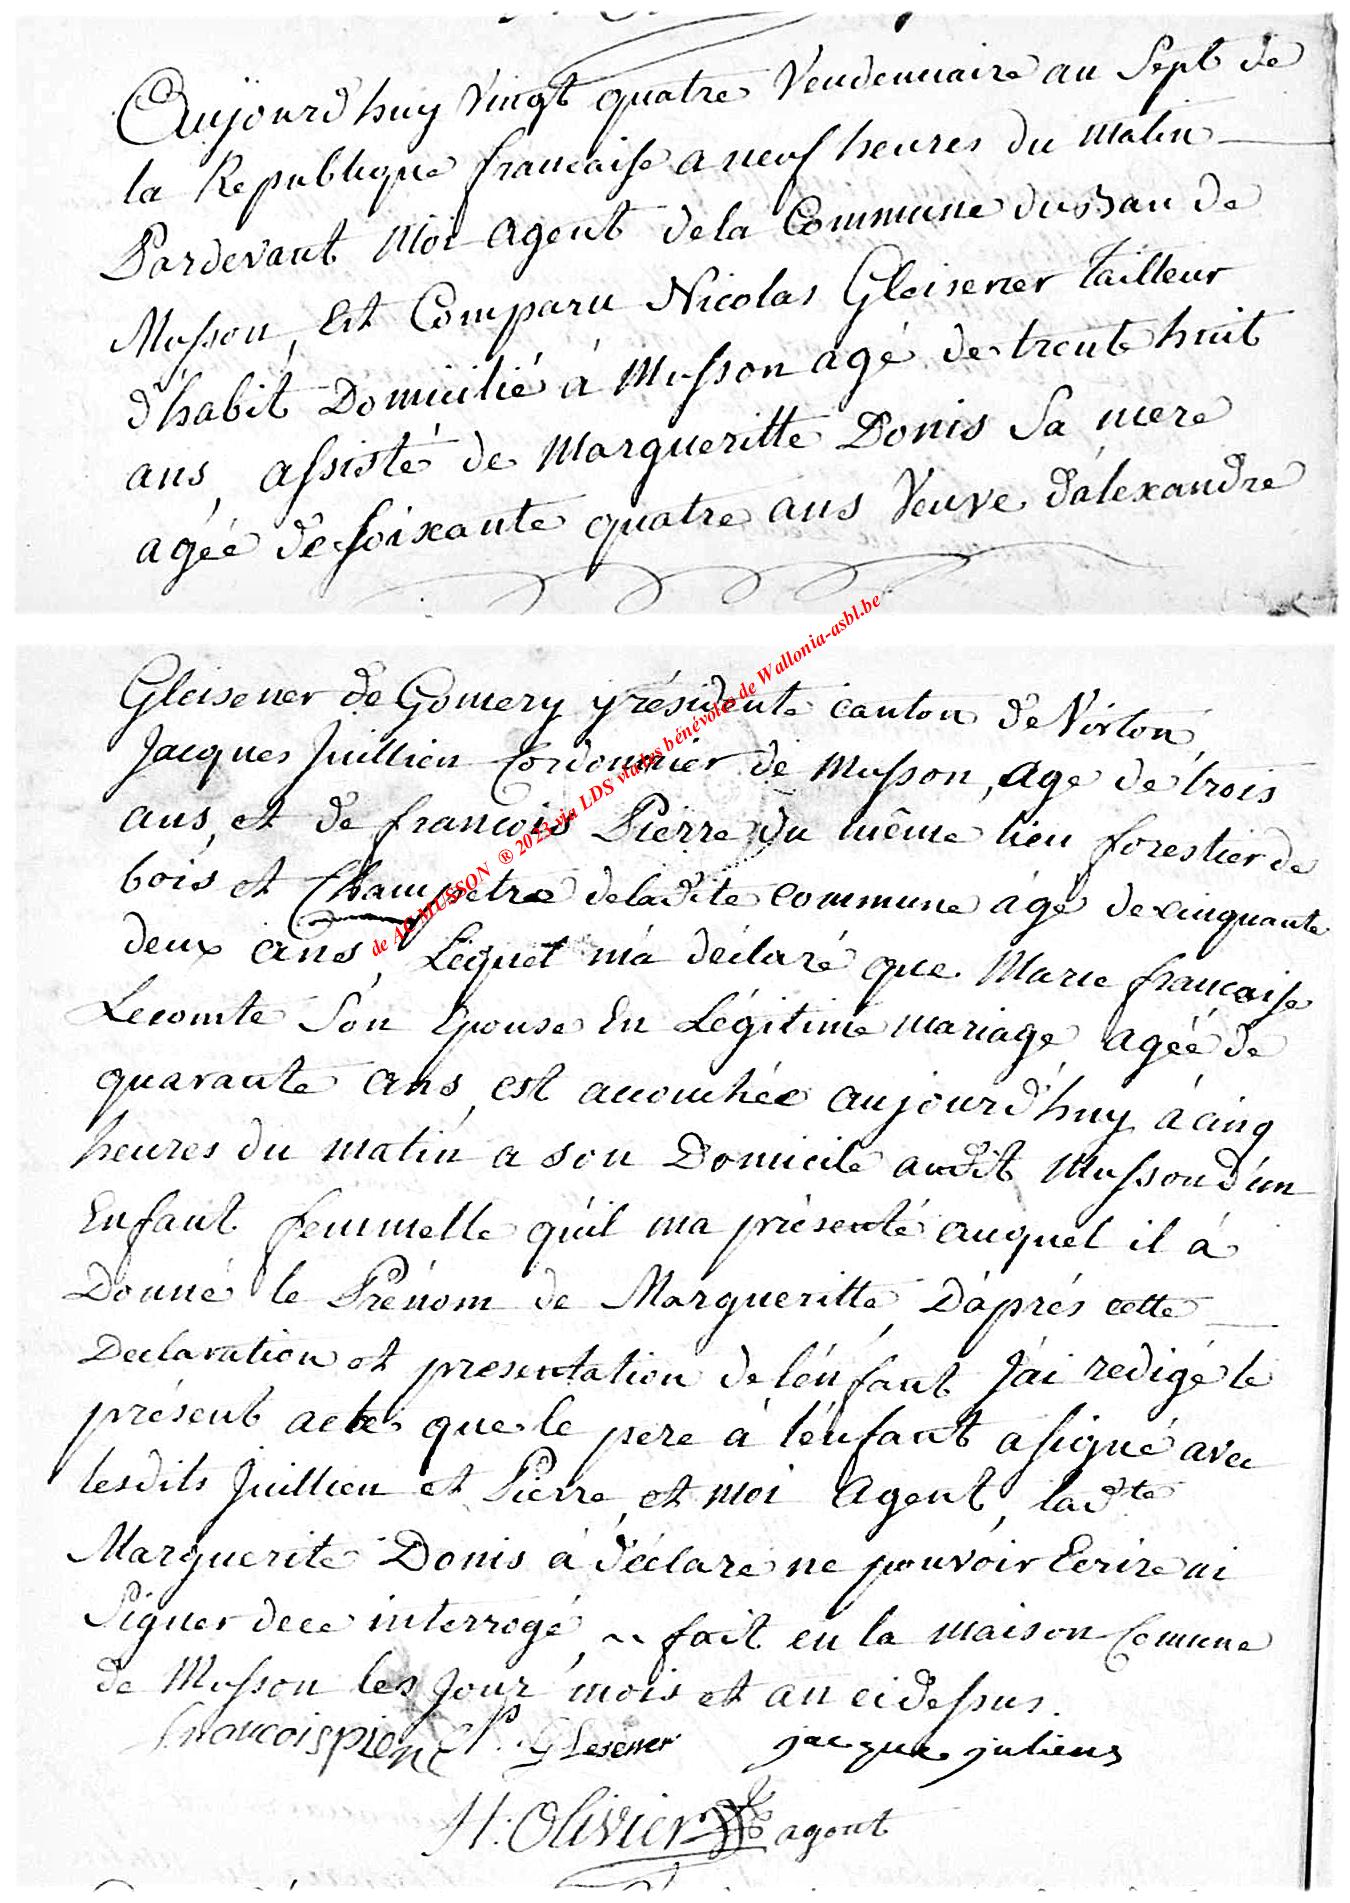 Aujourd'huy Vingt quatre Vendemiaire an Sept de
la Republique francaise a neuf heures du matin
Pardevant Moi Agent dela Commune du Ban de
Musson, Est Comparu Nicolas Gleisener tailleur
d'habit Domicilié à Musson agé de trente huit
ans, assisté de Margueritte Donis Sa mere
agée de soixante quatre ans Veuve d'alexandre
Gleisener de Gomery présidente canton de Virton,
Jacques Juillien Cordonnier de Musson, age de trois
ans, et de francois Pierre du même lieu forestier de
bois et Champetre deladite commune âgé de cinquante
deux ans, Lequel m'a déclaré que Marie francaise
Lecomte Son Epouse En Légitime mariage agéé de
quarante ans, est accouchée aujourd'huy à cinq
heures du matin a son Domicile audit Musson d'un
Enfant femmelle qu'il ma présenté auquel il à
Donné le Prénom de Margueritte, D'aprés cette
Declaration et presentation de l'énfant J'ai redigé le
présent acte que le pere à l'énfant a signé avec
lesdits Juillien et Pierre, et moi Agent, ladte
Marguerite Donis à déclare ne pouvoir Ecrire ni
Signer dece interrogé, ~ fait en la maison Comune
de Musson les Jour mois et an ci dessus.
francois pierre N. Glesener jacque juliens
H: Olivier agent
de AC MUSSON ® 2023 via LDS via les bénévoles de Wallonia-asbl.be